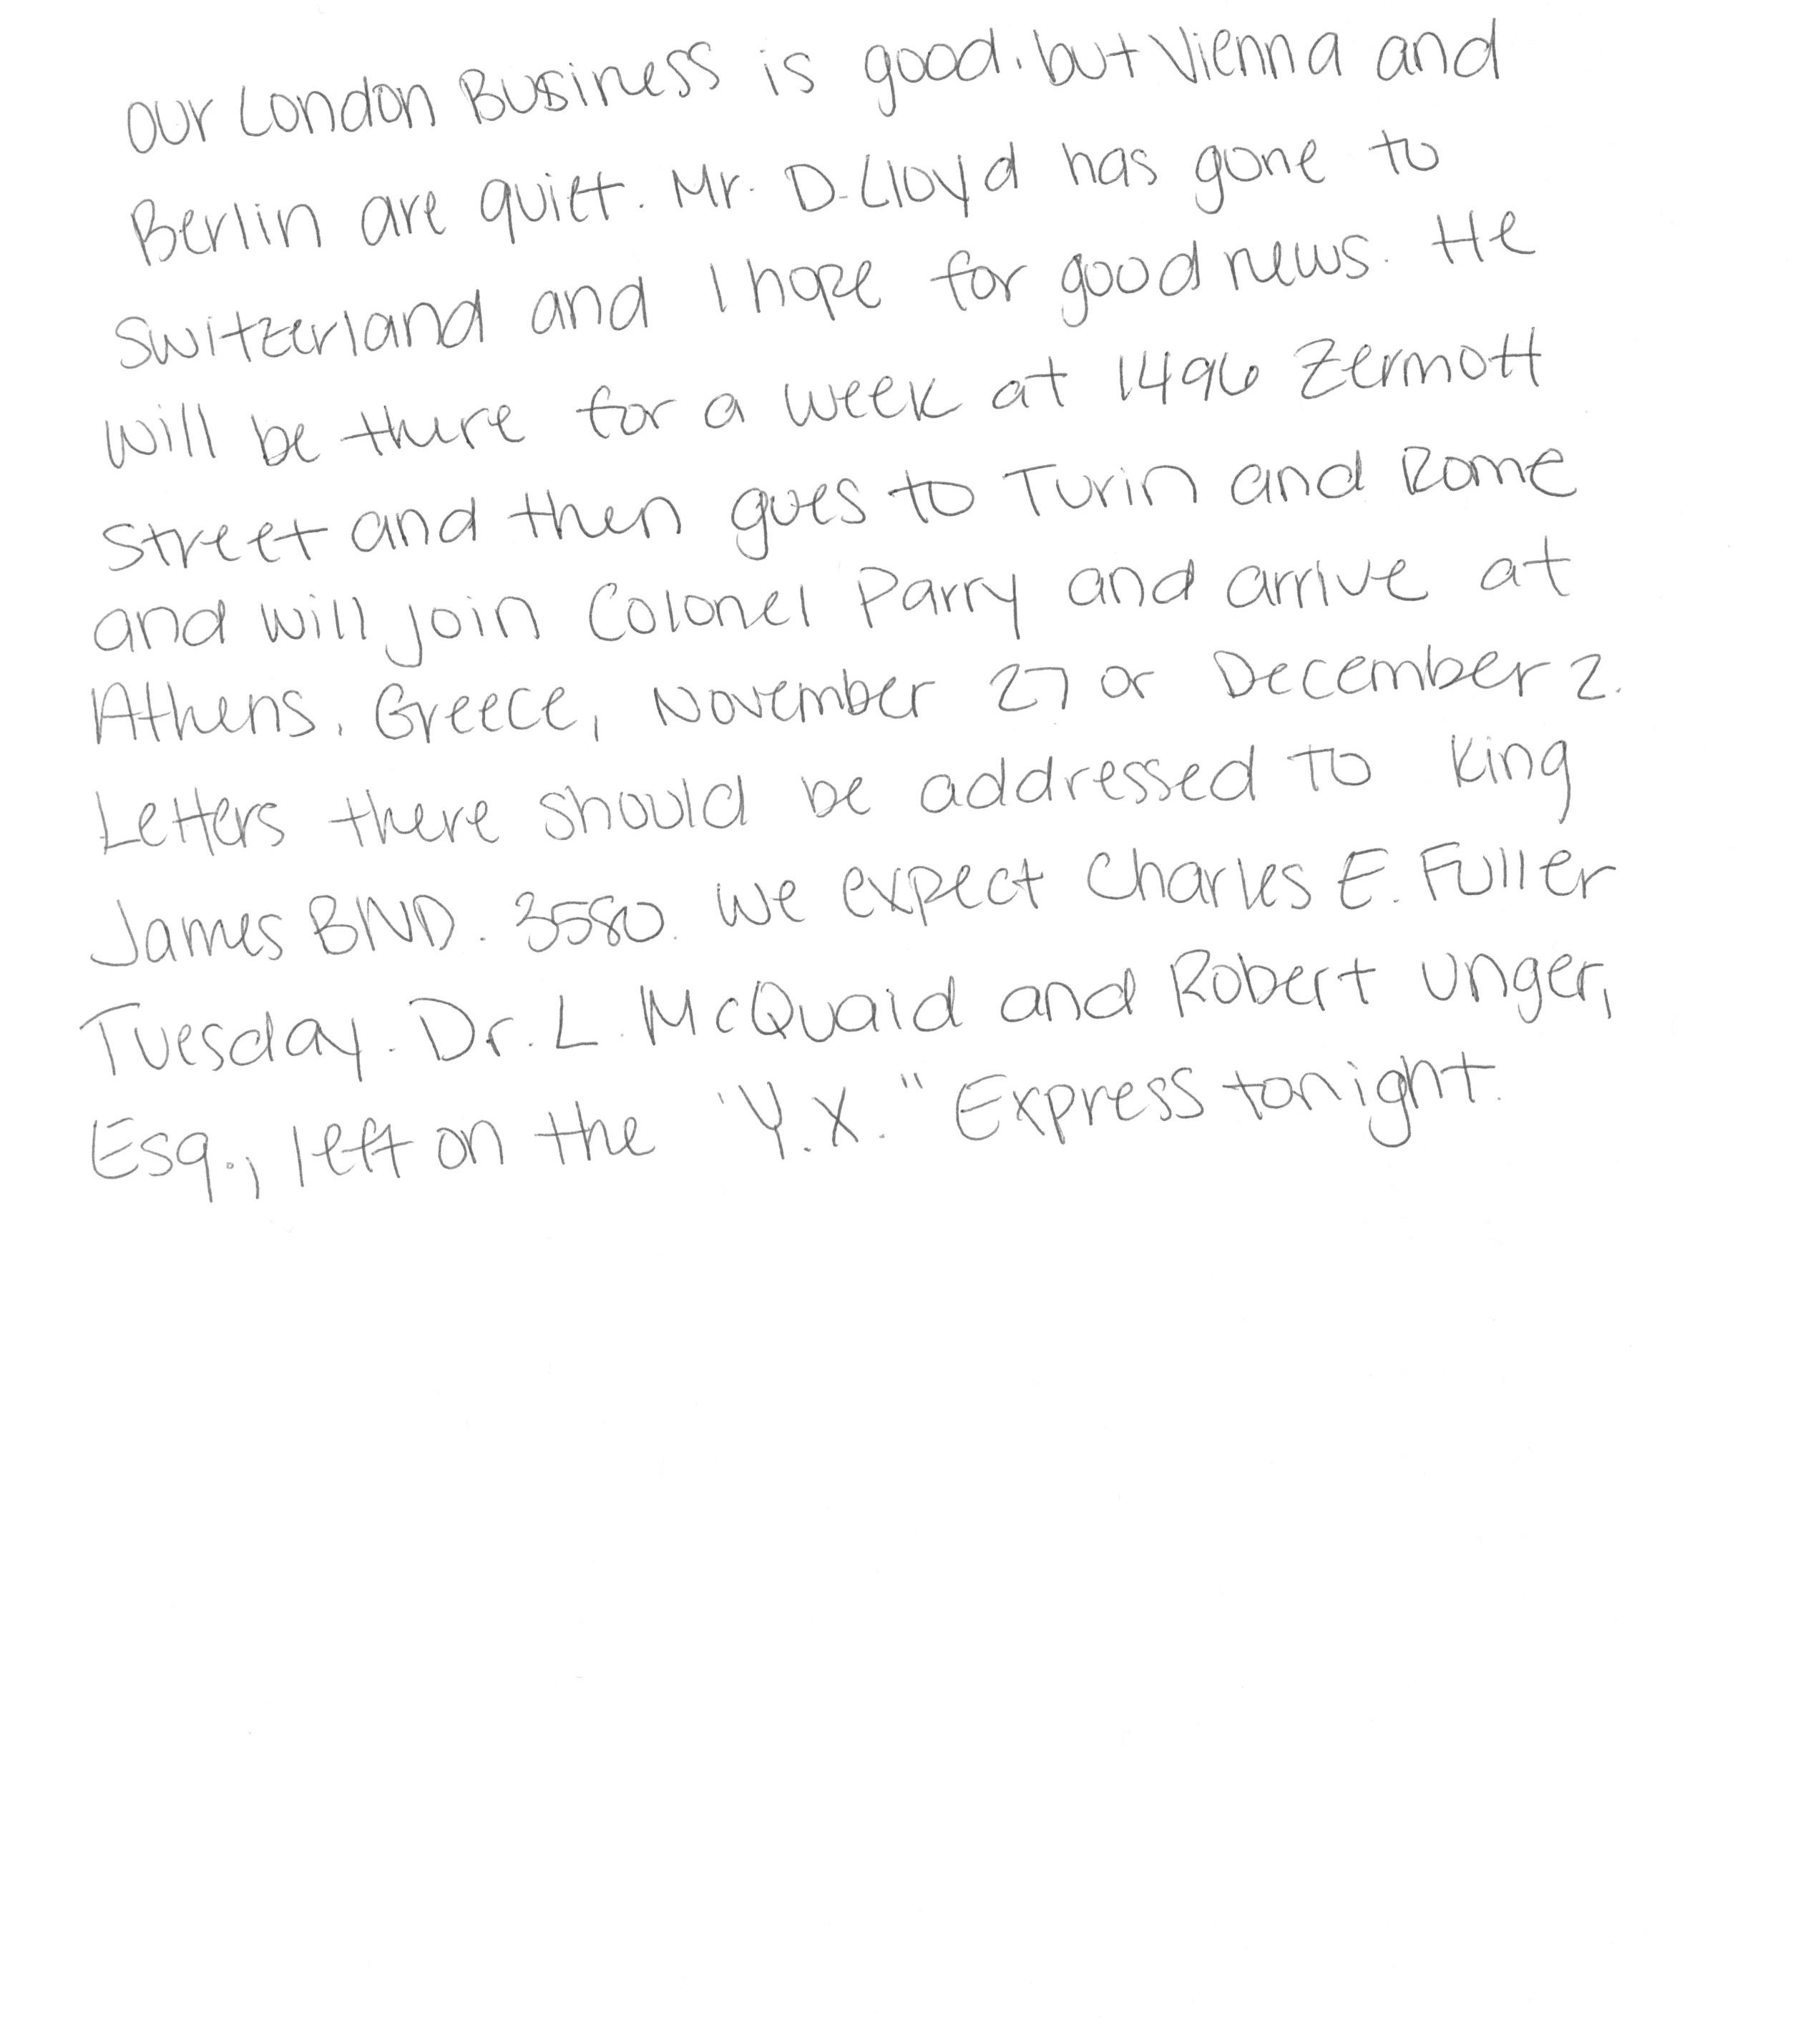 our London Business is good. but Vienna and
Berlin are quiet. Mr. D. Lloyd has gone to
Switzerland and I hope for good news. He
will be there for a week at 1496 Zermott
street and then goes to Turin and Rome
and will join Colonel Parry and arrive at
Athens, Greece, November 27 or December 2.
Letters there should be addressed to King
James BlvD. 3580. We expect Charles E. Fuller
Tuesday. Dr. L. McQuaid and Robert Unger,
Esq., left on the "Y.X." Express tonight.